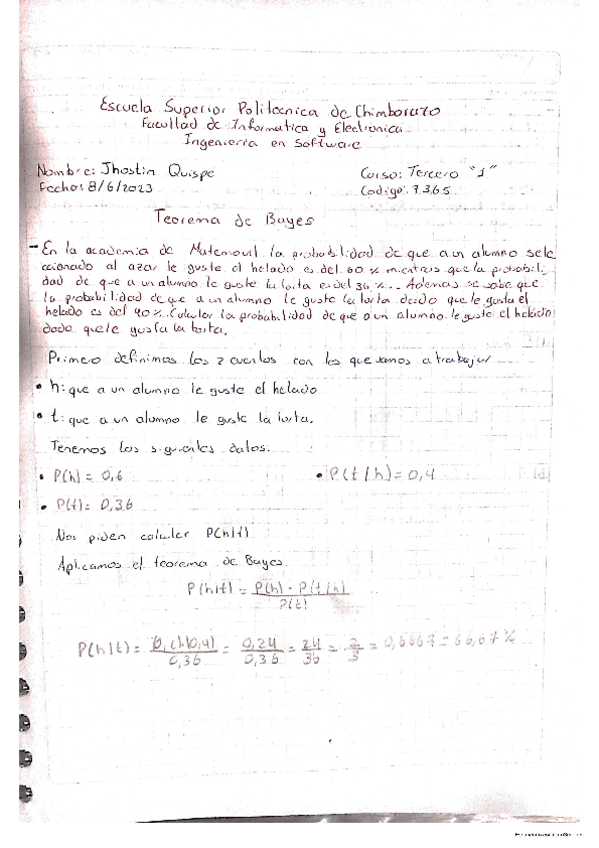 Escuela Superior Politecnica de Chimborazo
Facultad de Informatica y Electronica
Ingenieria en Software
Nombre: Jhostin Quispe Curso: Tercero "1"
Fecha: 8/6/2023 Codigo: 7365
Teorema de Bayes
- En la academia de Matemovil la probabilidad de que a un alumno sele
ccionado al azar le guste el helado es del 60 % mientras que la probabili-
dad de que a un alumno le guste la torta es del 36 %. Ademas se sabe que
la probabilidad de que a un alumno le guste la torta dado que le gusta el
helado es del 40 %. Calcular la probabilidad de que a un alumno le guste el helado
dado que le gusta la torta.
Primero definimos los 2 eventos con los que vamos a trabajar
• h: que a un alumno le guste el helado
• t: que a un alumno le guste la torta.
Tenemos los siguientes datos:
• P(h) = 0,6 • P(t/h) = 0,4
• P(t) = 0,36
Nos piden calular P(h|t)
Aplicamos el teorema de Bayes
P(h|t) = P(h) · P(t/h)
P(t)
P(h|t) = = 0,24 = 24 = 2 = 0,6667 = 66,67 %
0,36 0,36 36 3